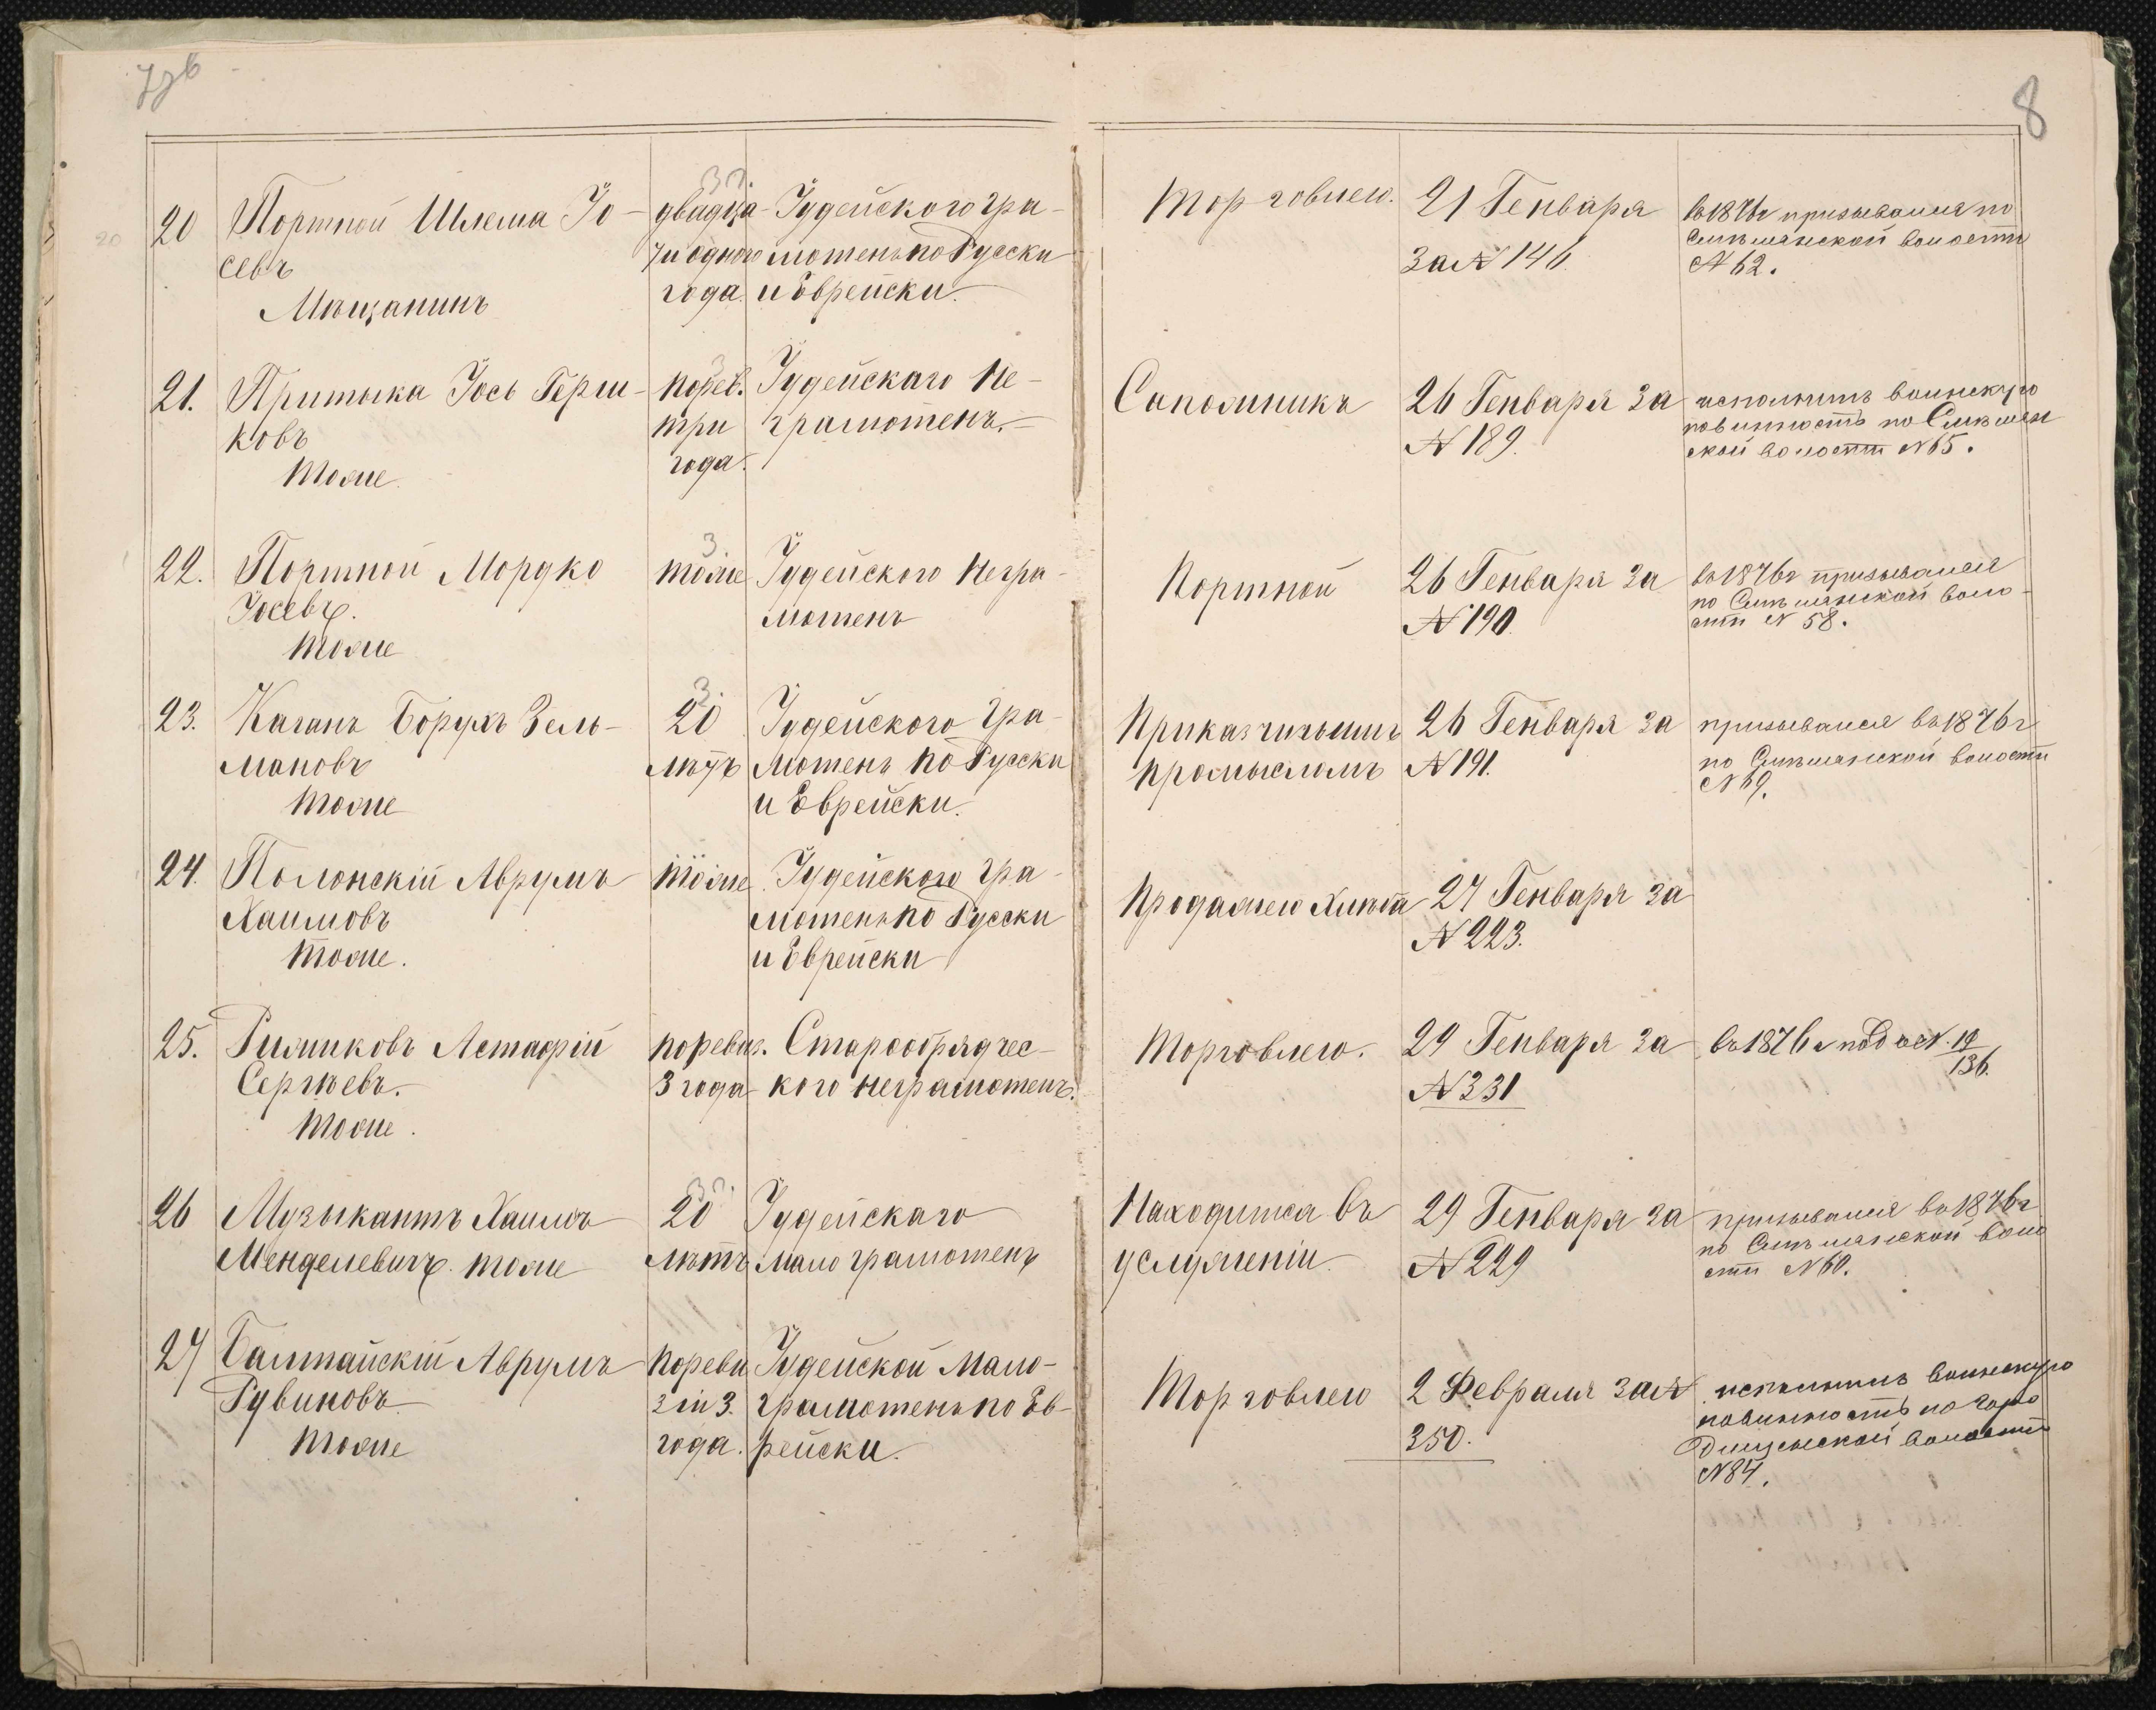 7 зв
8
20 Портной Шлема Іо-
севъ
Мѣщанинъ
двадца-
ти одного
года.
Іудейского гра-
мотенъ по Русски
и Еврейски.
Торговлею.
21 Генваря
За № 146.
въ 1876 г призывался по
Смѣшанской волости
№ 62.
21. Притыка Іось Герш-
ковъ
тоже.
порев.
три
года.
Іудейскаго Не-
грамотенъ.
Сапожникъ
26 Генваря За
№ 189.
исполнитъ воинскую
повинность по Смѣшан
ской волости № 65.
22. Портной Мордко
Іосевъ.
тоже
тоже
Іудейского Негра-
мотенъ
Портной
26 Генваря За
№ 190.
въ 1876 г призывался
по Смѣшанской воло-
сти № 58.
23. Каганъ Борухъ Зель-
мановъ
тоже
20
лѣтъ
Іудейского Гра-
мотенъ по Русски
и Еврейски.
Приказчичьимъ
промысломъ
26 Генваря За
№ 191.
призывался въ 1876 г
по Смѣшанской волости
№ 69.
24. Полонскій Аврумъ
Хаимовъ
тоже.
тоже
Іудейского Гра-
мотенъ по Русски
и Еврейски
Продажею Хлѣба
27 Генваря За
№ 223.
25. Астафій
Сергѣевъ.
тоже.
поревиз.
3 года
Старообрядчес-
кого неграмотенъ.
Торговлею.
29 Генваря За
№ 331
въ 1876 г под № 19
136.
26 Музыкантъ Хаимъ
Менделевичъ. тоже
20
лѣтъ
Іудейскаго
Мало грамотенъ
Находится въ
услуженіи
29 Генваря За
№ 229
призывался въ 1876 г
по Смѣшанской воло
сти № 60.
27 Балтайскій Аврумъ
Рувиновъ
тоже
пореви
зіи 3.
года.
Іудейской Мало-
грамотенъ по Ев-
рейски.
Торговлею
2 Февраля За №
350.
исполнитъ воинскую
повинность по Горо
дищенской волости
№ 84.